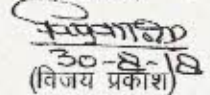 30-8-18
(विजय प्रकाश)